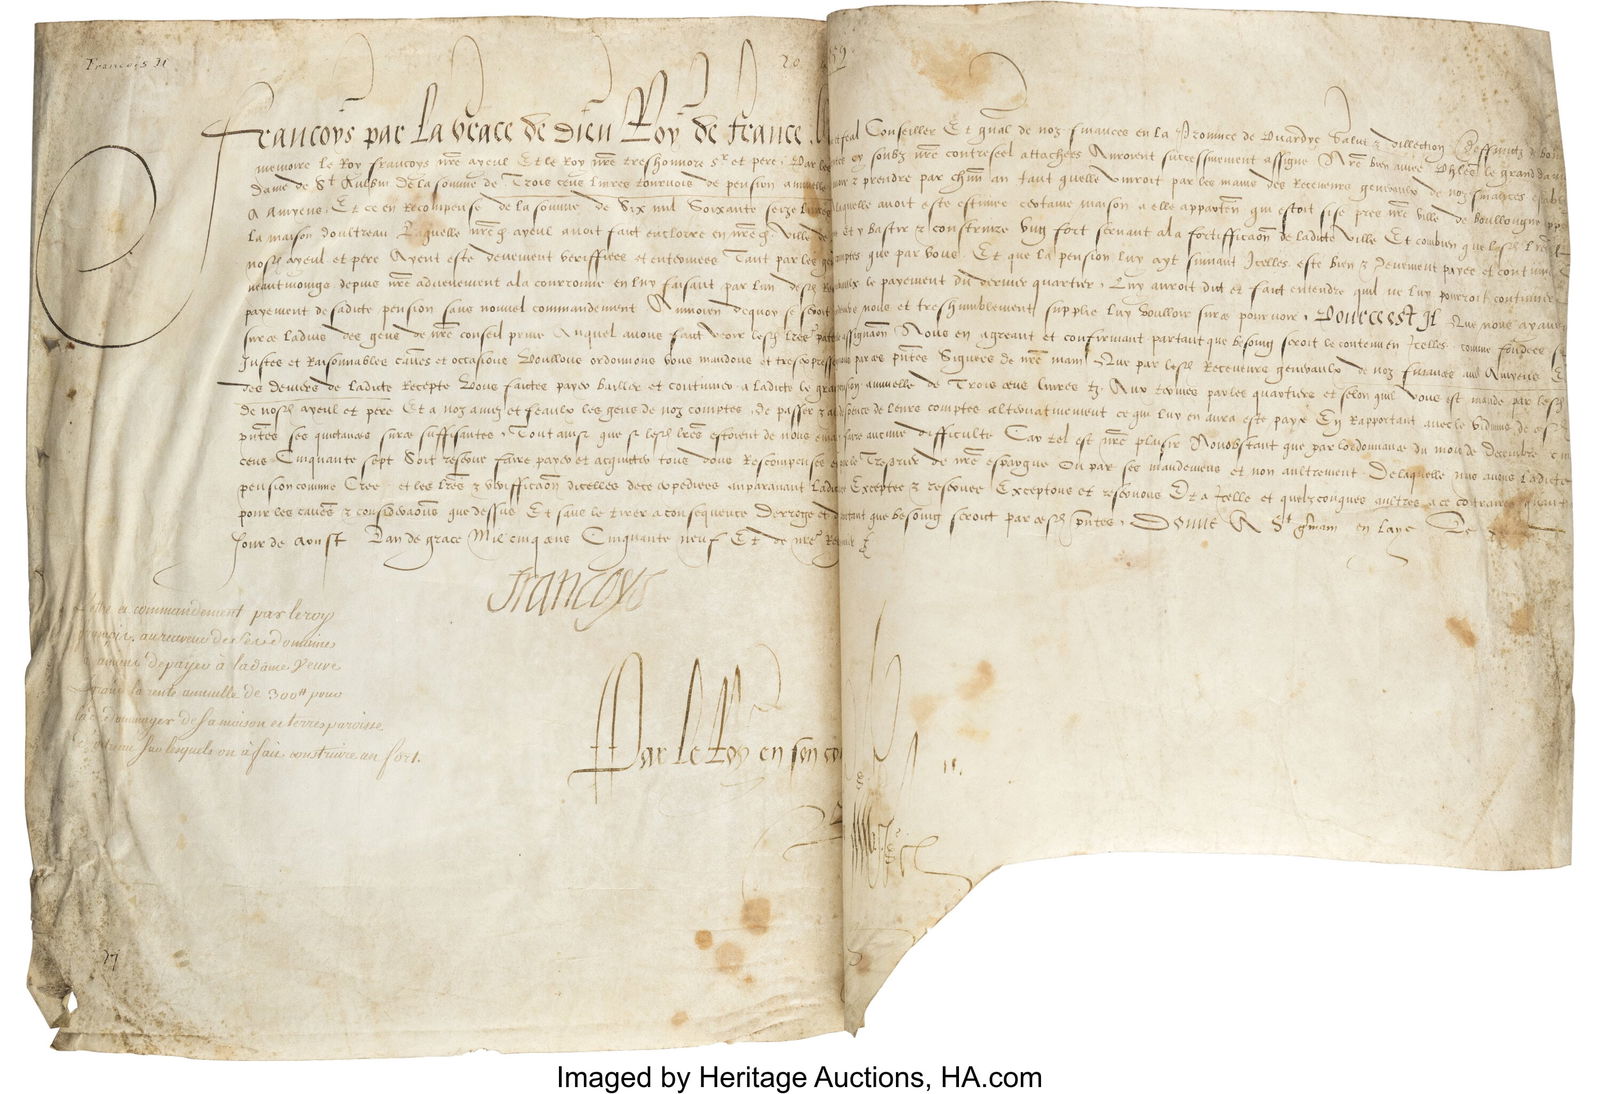 Francois II
20
Francoys par La Grace de Dieu Roy de France. A feal Conseiller Et gnal de noz finances en la Province de Picardye Salut & dillection Deffunctz de bonne
memoire le Roy francoys nre ayeul Et le Roy nre treshonnore sr et pere. Par les soubz nre contreseel attachees Auroient successivement assigne A nre bien amee le grand
Dame de St Aulbin De la somme de Trois cens livres tournois de pension annuelle & prendre par chun an tant quelle vivroit par les mains des Receveurs generaulx de noz finances
A Amyens, Et ce en Recompense de la somme de Six mil Soixante seize livres laquelle avoit este estimee certaine maison a elle apparten qui estoit sise pres nre ville de boullongne
La maison doultreau Laquelle nred ayeul avoit faict enclorre en nred ville de Et y bastir & construire ung fort servant a la fortifficaon de ladicte ville Et combien que
nosd ayeul et pere Ayent este deuement veriffiees et enterinees Tant par les gens comptes que par vous. Et que la pension luy ayt suivant Icelles este bien & deuement payee et continuee
neantmoings depuis nre advenement a la couronne en luy faisant par lun desd le payement du dernier quartier, Luy auroit dict et faict entendre quil ne luy pourroit continuer
payement de sadicte pension sans nouvel commandement Au moien dequoy se seroit nous et treshumblement supplie luy voulloir sur ce pourvoir. Pource est Il Que nous ayans
sur ce ladvis des gens de nre conseil prive Auquel avons faict veoir lesd lres assignaon Nous en agreant et confirmant partant que besoing seroit le contenu en Icelles comme fondees
Justes et Raisonnables causes et occasions Voullons ordonnons vous mandons et tresexpressement par ces pntes Signees de nre main Que par lesd Receveurs generaulx de noz finances Amyens
des deniers de ladicte Recepte Vous faictes payer bailler et continuer a ladicte le grand pension annuelle de Trois cens livres tz. Aux termes par les quartiers et selon quil vous est mande par lesd
de nosd ayeul et pere Et a noz amez et feaulx les gens de noz comptes, de passer & despence de leurs comptes alternativement ce qui luy en aura este paye En Rapportant avec le vidimus
pntes ses quictances sur ce suffisantes. Tout ainsi que si lesd lres estoient de nous faire aucune difficulte Car tel est nre plaisir Nonobstant que par lordonnance du mois de Decembre
cens Cinquante sept Soit reserve faire payer et acquicter tous dons Recompenses Tresorier de nre espargne Ou par ses mandemens et non aultrement De laquelle nous avons ladicte
pension comme Cree et les lres & veriffication dicelles de ce expediees auparavant ladicte Exceptee & reservee Exceptons et reservons Et a Icelle et quelzconques aultres a ce contraires
pour les causes & consideraons que dessus Et sans le tirer a consequence Derroge et dautant que besoing seroit par cesd pntes. Donne A St gmain en laye Le
Jour de Aoust Lan de grace Mil cinq cens Cinquante neuf Et de nre Regne
francoys
Lettre et commandement par le roy
françois au receveur de ses domaines
amiens de payer à la dame Veuve
Legrand la rente annuelle de 300# pour
la dedommager de sa maison et terres paroisse
doutreau sur lesquels on à fait construire un fort.
Par le Roy en son
27
Imaged by Heritage Auctions, HA.com